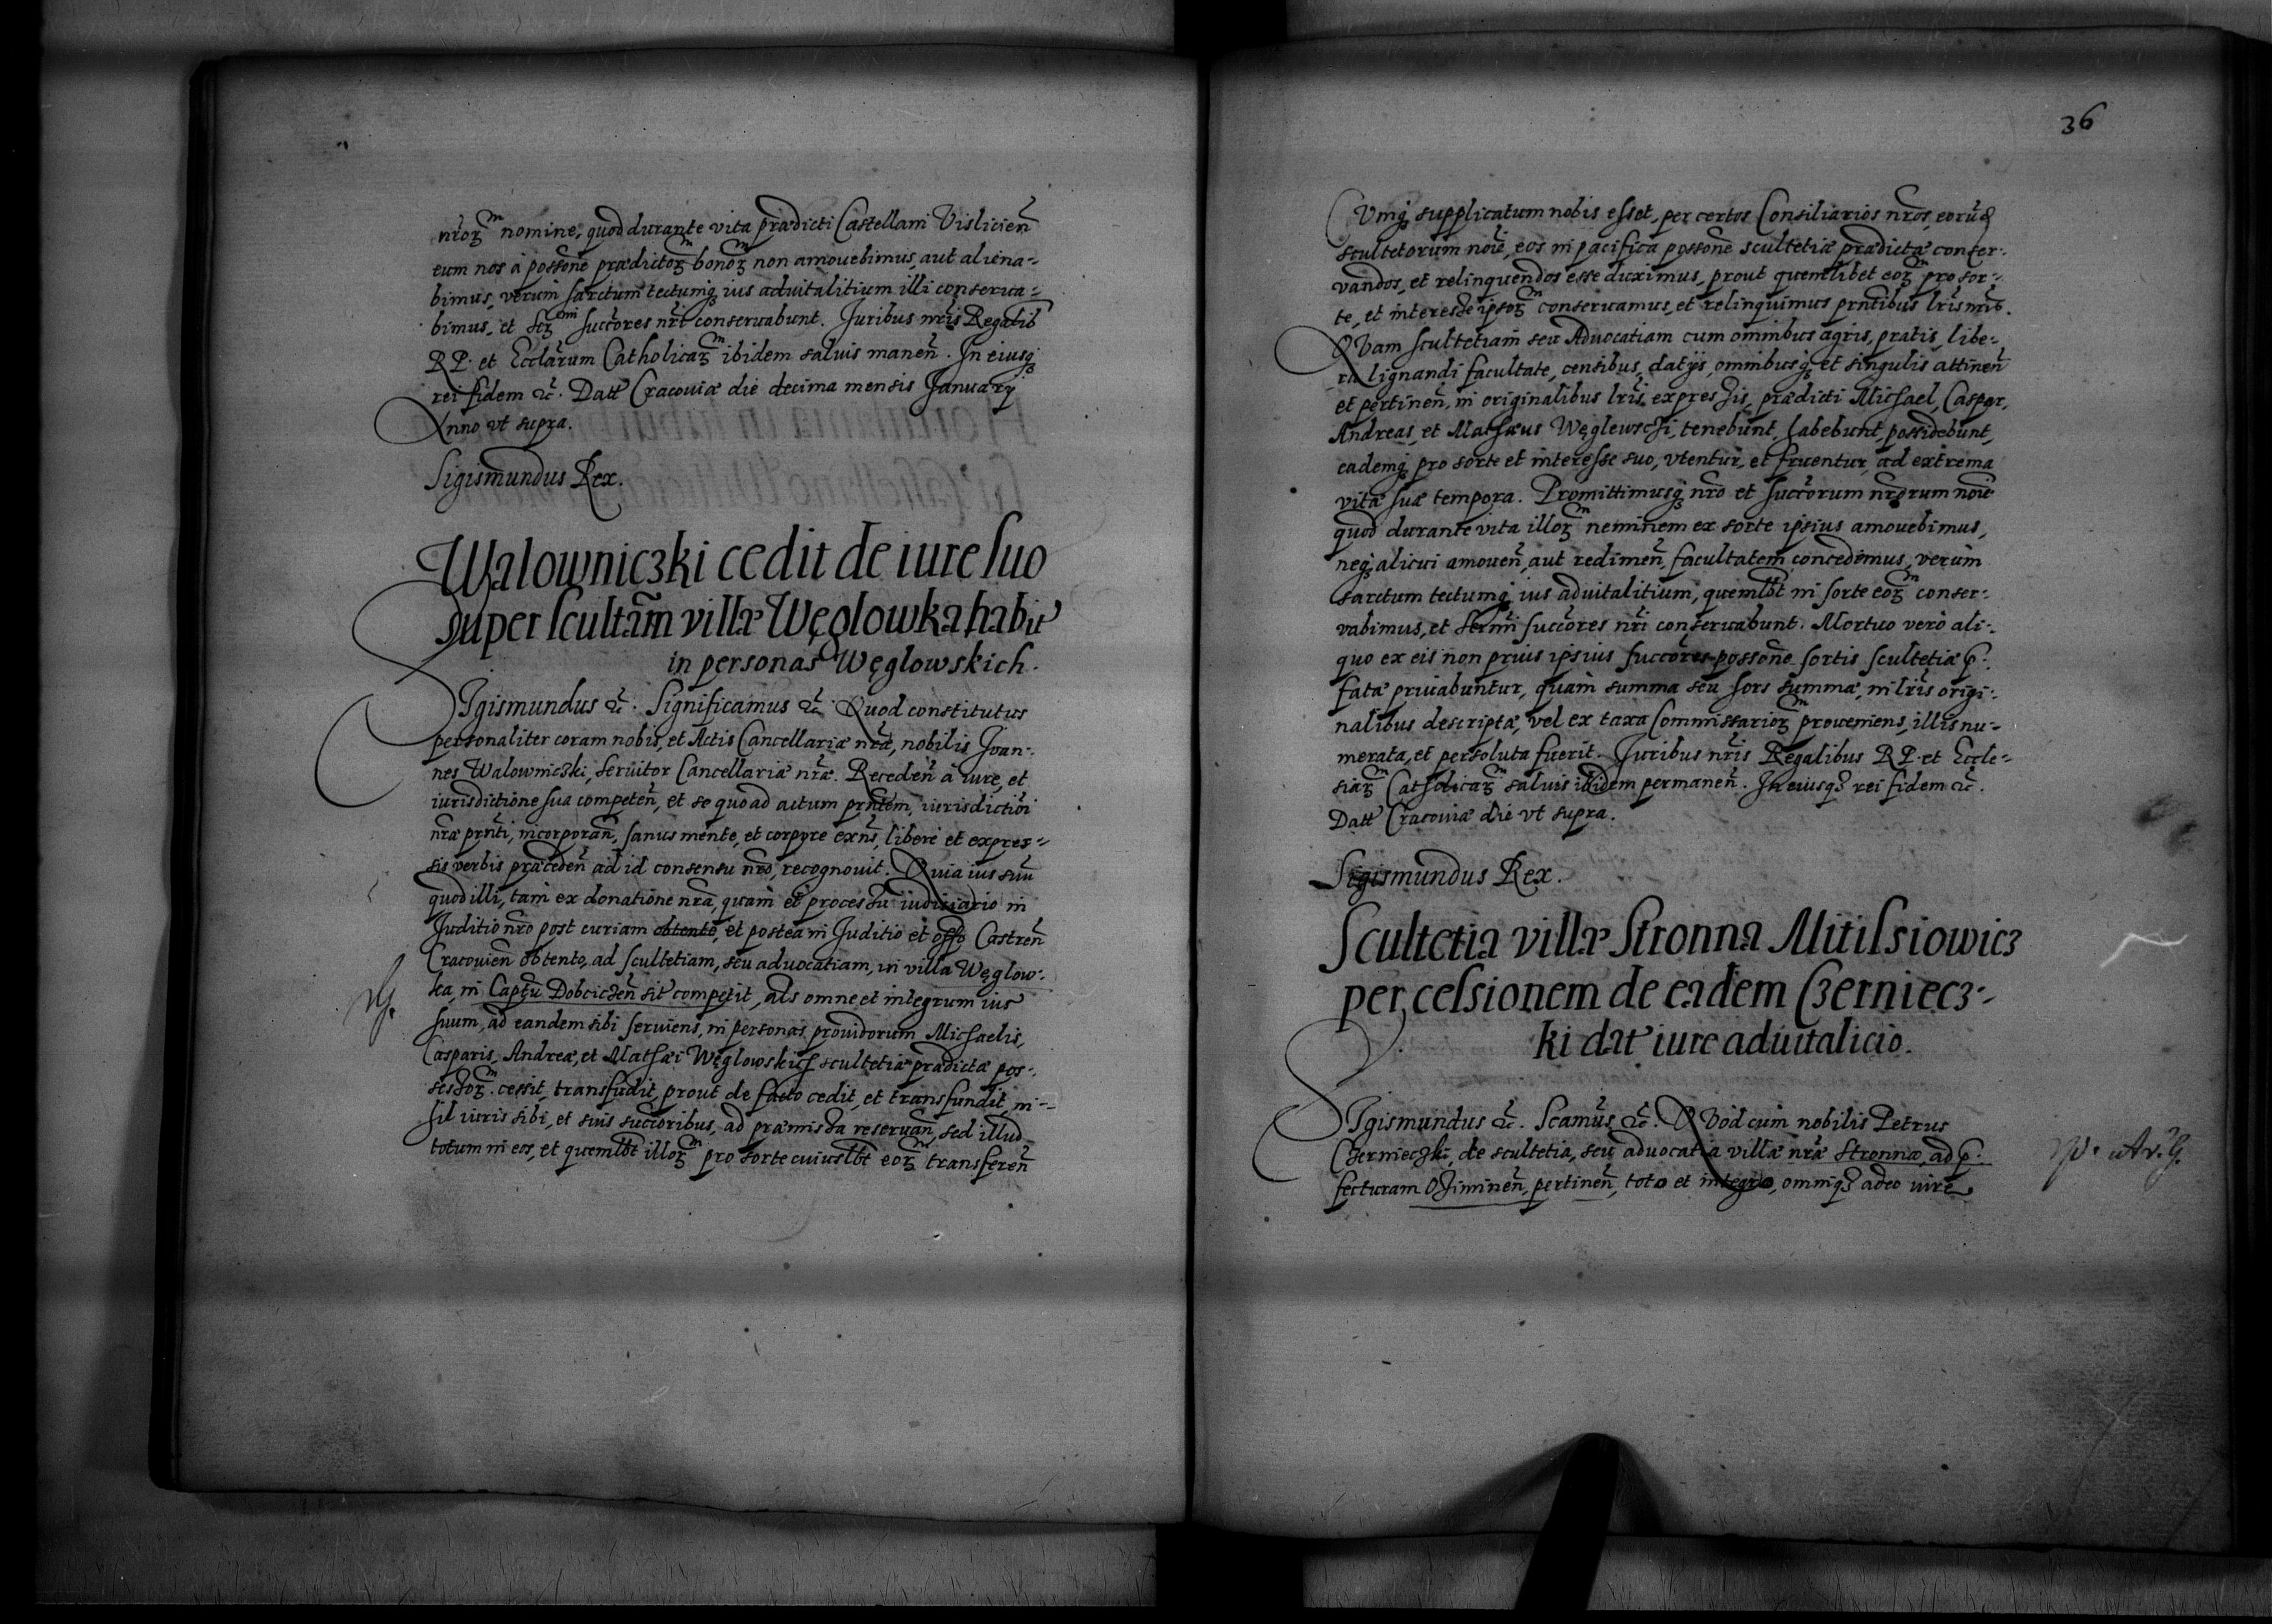 nror̃m nomine, quod durante vita prædicti Castellani Vislicien̄
eum nos à possõne prædictor̃m bonor̃m non amovebimus, aut aliena-
bimus, verum sarctum tectumq̃ ius advitalitium illi conserva-
bimus, et Ser̃mi succ̃ores nr̃i conservabunt. Juribus nr̃is Regalib
R P. et Ecclãrum Catholicar̃m ibidem salvis manen̄. In eiusq̃
rei fidem &c. Datt Cracoviæ die decima mensis January
Anno vt supra.
Sigismundus Rex.
Walowniczki cedit de iure suo
super scultãm villæ Węglowka habit
in personas Węglowskich.
SIgismundus &c. Significamus &c. Quod constitutus
personaliter coram nobis, et Actis Cancellariæ nr̃a, nobilis Joan-
nes Walowniczki, servitor Cancellariæ nr̃æ. Receden̄ à iure, et
iurisdictione sua competen̄, et se quo ad actum pr̃ntem, iurisdictioi
nr̃æ pr̃nti, incorporan̄, sanus mente, et corpore exñs, libere et expres-
sis verbis præceden̄ ad id consensu nr̃o, recognovit. Quia ius suū
quod illi, tam ex donatione nr̃a, quam et processu iudiciario in
Juditio nr̃o post curiam obtento, et postea in Juditio et offo Castren̄
Cracovien̄ obtento, ad scultetiam, seu advocatiam, in villa Węglow-
ka, in Captũ Dobcicien̄ sit competit, als omne et integrum ius
suum, ad eandem sibi serviens, in personas providorum Michaelis,
Casparis, Andreæ, et Mathæi Węglowskich scultetiæ prædictæ pos-
sessor̃m. cessit, transfudit, prout de facto cedit, et transfundit, ni-
hil iuris sibi, et suis succ̃oribus, ad præmissa reservan̄, sed illud
totum in eos, et quemlbt illor̃m pro sorte cuiuslbt eor̃m transferen̄
36
CVmq̃ supplicatum nobis esset, per certos Consiliarios nr̃os, eorũq̃
scultetorum noĩe, eos in pacifica possõne scultetiæ prædictæ conser-
vandos, et relinquendos esse duximus, prout quemlibet eor̃m pro sor-
te, et interesse ipsor̃m conservamus, et relinquimus pr̃ntibus lr̃is nr̃is.
QVam scultetiam seu Advocatiam cum omnibus agris, pratis, libe-
ra lignandi facultate, censibus, datijs omnibusq̃ et singulis attinen̄
et pertinen̄, in originalibus lr̃is expressis, prædicti Michael, Caspar,
Andreas, et Mathæus Węglewschi, tenebunt, habebunt, possidebunt,
eademq̃ pro sorte et interesse suo, vtentur, et fruentur, ad extrema
vitæ suæ tempora. Promittimusq̃ nr̃o et succ̃orum nr̃orum noĩe
quod durante vita illor̃m neminem ex sorte ipsius amovebimus,
neq̃ alicui amoven̄, aut redimen̄, facultatem concedemus, verum
sarctum tectumq̃ ius advitalitium, quemlbt in sorte eor̃m conser-
vabimus, et Sermi succ̃ores nr̃i conservabunt. Mortuo verò ali-
quo ex eis non prius ipsius succ̃ores possõne sortis scultetiæ p̃-
fatæ privabuntur, quam summa seu sors summæ, in lr̃is origi-
nalibus descripta, vel ex taxa Commissarior̃m proveniens, illis nu-
merata, et persoluta fuerit. Juribus nr̃is Regalibus R P. et Eccle-
siar̃m Catholicar̃m salvis ibidem permanen̄. In eiusq̃ rei fidem &c.
Datt Cracoviæ die vt supra.
Sigismundus Rex.
Scultetia villæ Stronna Mitilsiowicz
per celsionem de eadem Czerniecz-
ki dat iure advitalicio.
SIgismundus &c. Scamus &c. QVod cum nobilis Petrus
Czernieczki, de scultetia, seu advocatia villæ nr̃æ Stronna, ad p̃-
fecturam Osiminen̄, pertinen̄, toto et integro, omniq̃ adeo iure